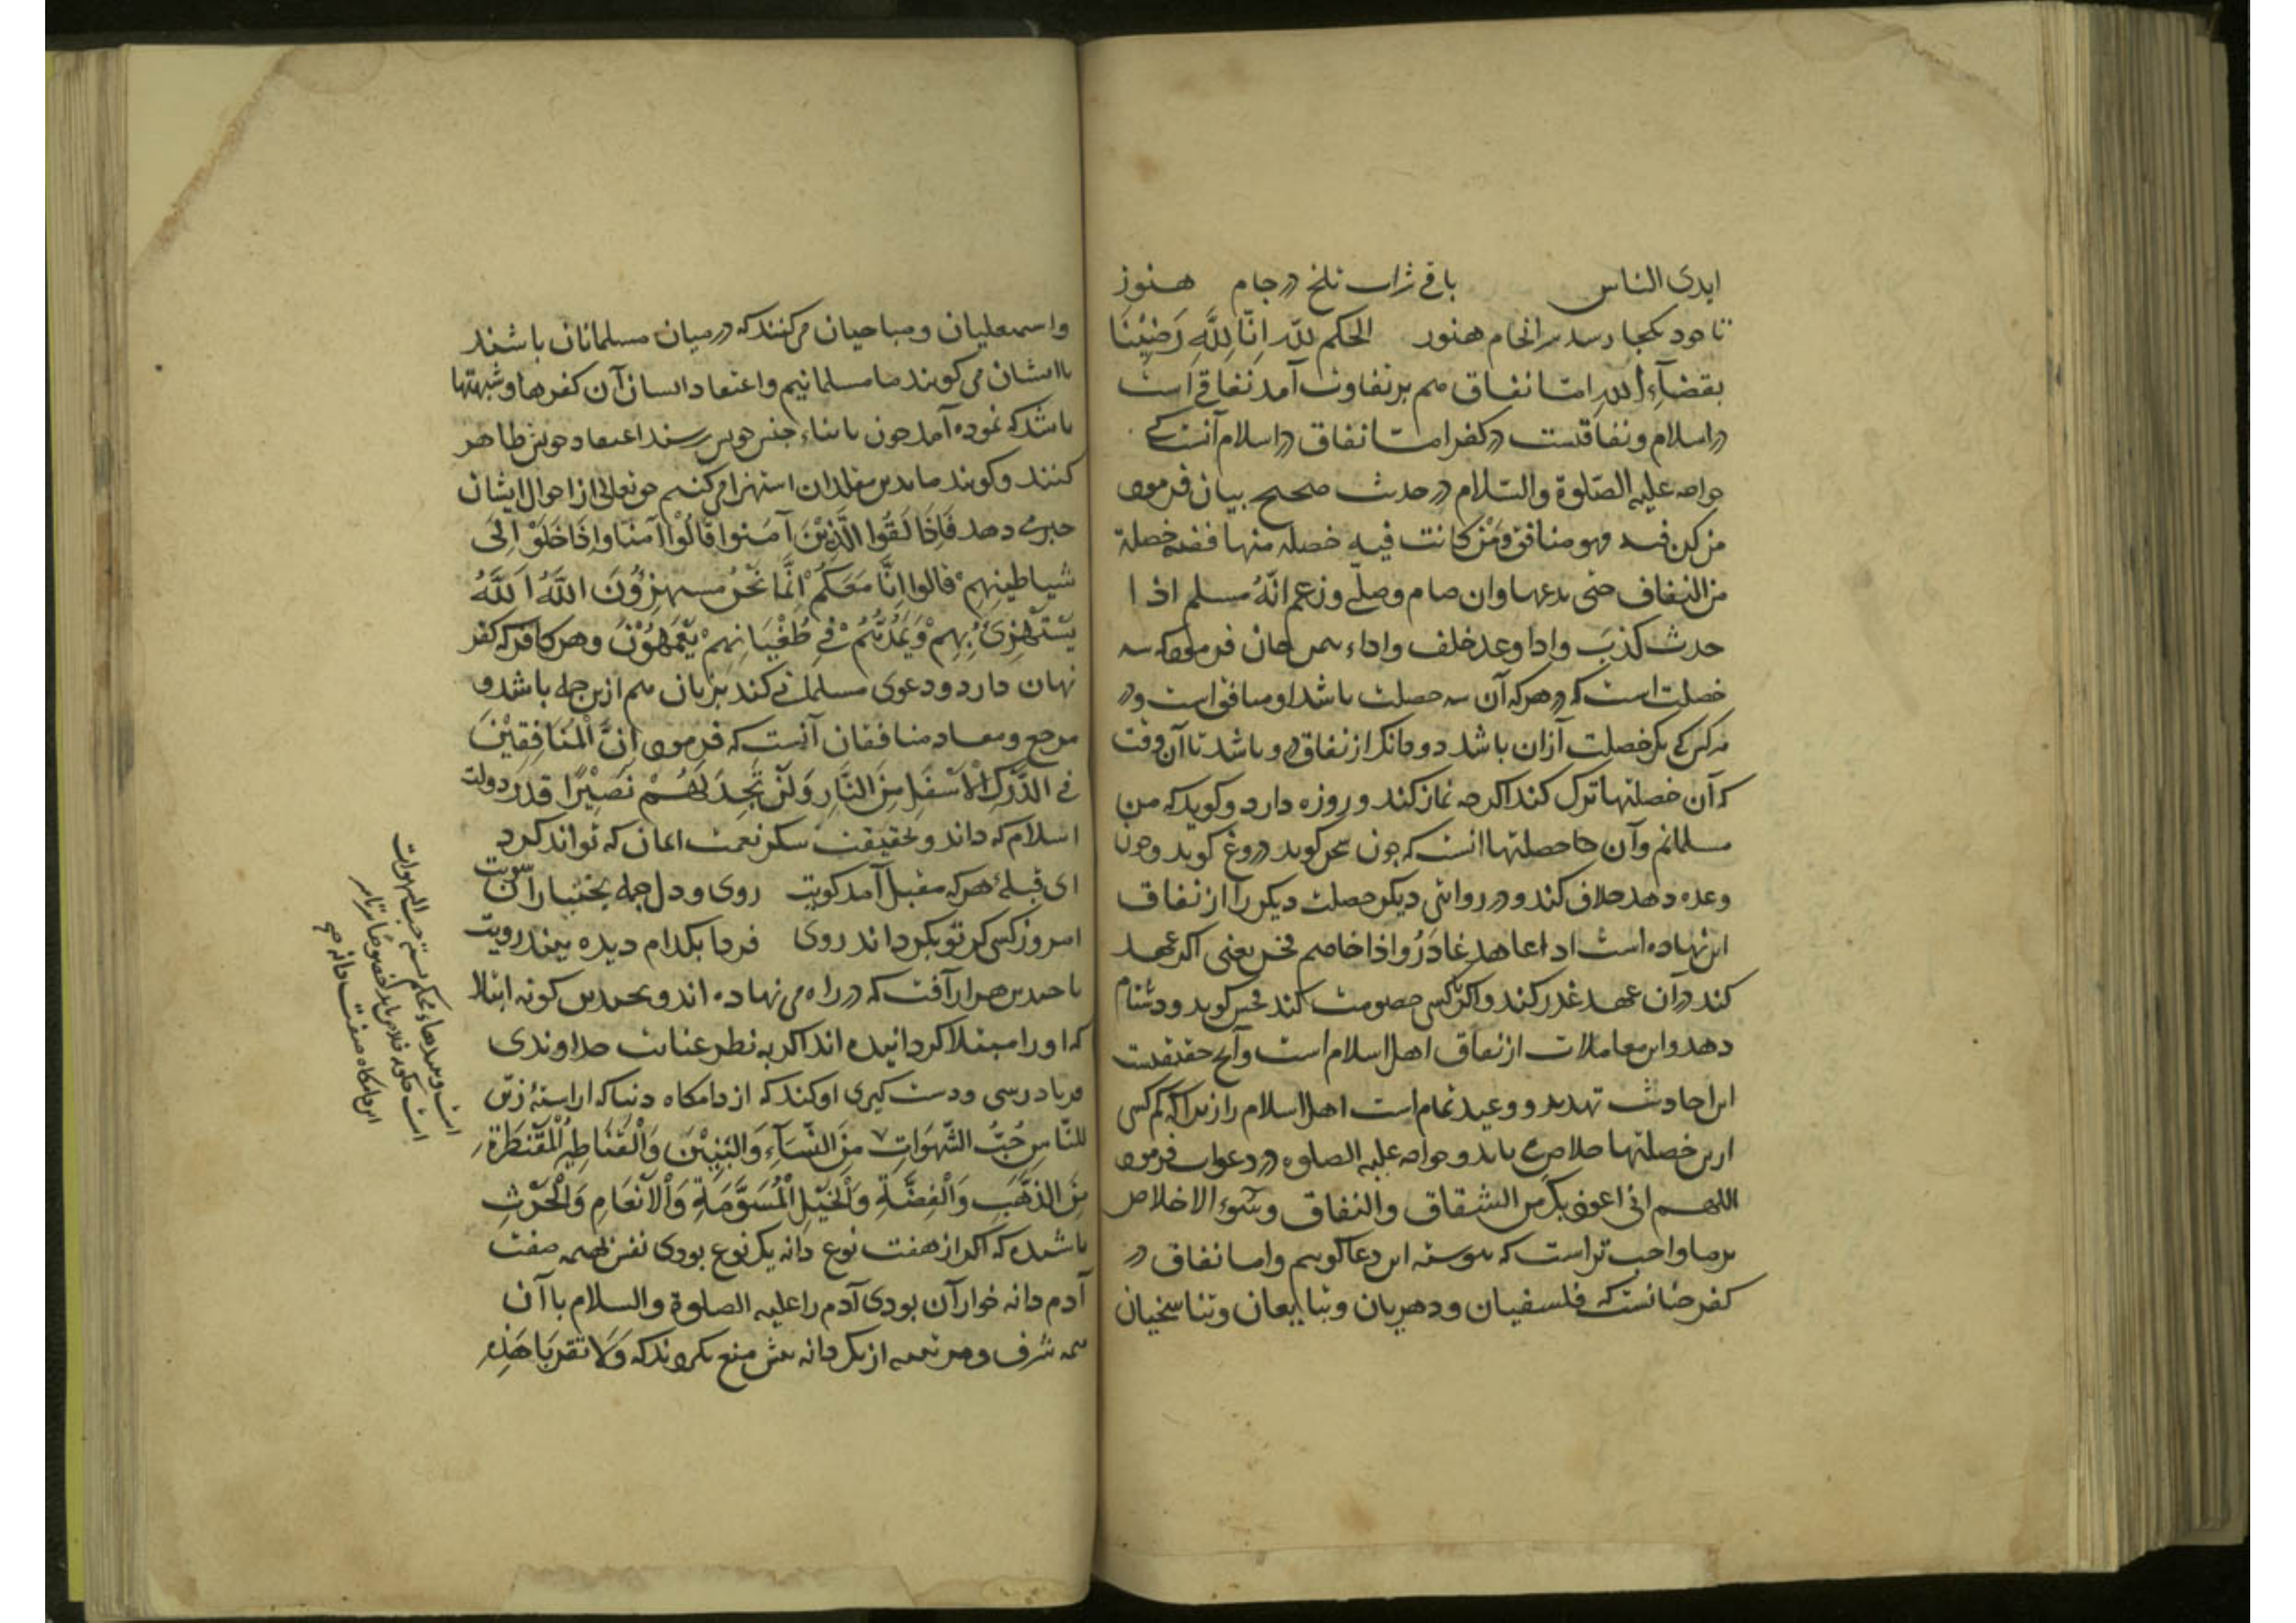 ایدی الناس باقی شراب تلخ در جام هنوز
تا خود بکجا رسد سرانجام هنوز الحکم لله اِنّا لِلّهِ رَضِیْنَا
بقضآءِ الله امّا نفاق هم بر تفاوت آمد نفاقی است
در اسلام و نفاقیست در کفر امّا نفاق در اسلام آنست کی
خواجه علیه الصّلوة والسّلام در حدیث صحیح بیان فرمود
من کن فیه فهو منافق وَمَنْ کانت فیهِ خصلة منها ففیه خصلة
من النفاق حتی یدعها وان صام وصلّی وزعم انّهُ مسلم اذا
حدث کذبَ واذا وعد خلف واذا ءتمن خان فرمود که سه
خصلت است که در هر که آن سه خصلت باشد او منافق است و در
هر کس کی یک خصلت از آن باشد دو دانک از نفاق درو باشد تا آن وقت
که آن خصلتها ترک کند اکرچه نماز کند و روزه دارد و کوید که من
مسلمانم و آن خصلتها انست که چون سخن کوید دروغ کوید و چون
وعده دهد خلاف کند و در روایتی دیکر خصلت دیکر را از نفاق
این نهاده است اذا عاهد غادَرُ واذا خاصم فخر یعنی اکر عهد
کند در آن عهد غدر کند و اکر با کسی خصومت کند فحش کوید و دشنام
دهد و این معاملات از نفاق اهل اسلام است و آنچ حقیقت
این احادیث تهدید و وعید تمام است اهل اسلام را زیرا که کم کسی
ازین خصلتها خلاص یابد و خواجه علیه الصلوه در دعوات فرمود
اللهم انی اعوذ بک من الشقاق والنفاق وسوء الاخلاص
بر ما واجب تر است که پیوسته این دعا کوییم و اما نفاق در
کفر چنانست که فلسفیان و دهریان و تبایعان و تناسخیان
واسمعلیان و مباحیان می کنند که در میان مسلمانان باشند
با ایشان می کویند ما مسلمانیم و اعتقاد ایشان آن کفرها و شبهتها
باشد که نموده آمد چون با ابناء جنس خویش رسند اعتقاد خویش ظاهر
کنند و کویند ما بدین مقلدان استهزا می کنیم حق تعالی از احوال ایشان
خبر می دهد فَاِذَا لَقُوا الَّذِیْنَ آمَنُوا قَالُوْا آمَنَّا وَاِذَا خَلَوْ اِلَی
شیاطِینِهِمْ قالوا اِنَّا مَعَکُمْ اِنَّمَا نَحْنُ مستهزِؤُنَ اللّهُ اَللّهُ
یَسْتَهْزِئُ بِهِمْ وَیَمُدُّهُمْ فِی طُغْیَانِهِمْ یَعْمَهُوْنَ و هر کافر که کفر
نهان دارد و دعوی مسلمانی کند بزبان هم ازین جمله باشد و
مرجع و معاد منافقان آنست که فرمود اِنَّ الْمُنَافِقِیْنَ
فِی الدَّرْکِ الْاَسْفَلِ مِنَ النَّارِ وَلَنْ تَجِدَ لَهُمْ نَصِیْرًا قدر دولت
اسلام که داند و بحقیقت شکر نعمت ایمان که تواند کرد
ای قبلۀ هر که مقبل آمد کویت روی و دل جمله بختیاران سویت
امروز کسی کز تو بکرداند روی فردا بکدام دیده بیند رویت
با چندین هزار آفت که در راه می نهاده اند و بچندین کونه ابتلا
که او را مبتلا کردانیده اند اکر به نظر عنایت خداوندی
فریاد رسی و دست کیری او کند که از دامکاه دنیا که اراستۀ زیّن
لِلنَّاسِ حُبُّ الشَّهَوَاتِ مِنَ النِّسَآءِ وَالْبَنِیْنَ وَالْقَنَاطِیْرِ الْمُقَنْطَرَةِ
مِنَ الذَّهَبِ وَالْفِضَّةِ وَالْخَیْلِ الْمُسَوَّمَةِ وَالْاَنْعَامِ وَالْحَرْثِ
باشد که اکر از هفت نوع دانه یک نوع بودی نفس بهیمه صفت
آدم دانه خوار آن بودی آدم را علیه الصلوة والسلام با آن
همه شرف و مرتبه از یک دانه بیش منع نکردند که وَلَا تَقْرَبَا هَذِهِ
است و بندهاء محکم بسته حب الشهوات
است چکونه خلاص یابد خصوصا مرتاسر
این دامکاه هفت دانه صح